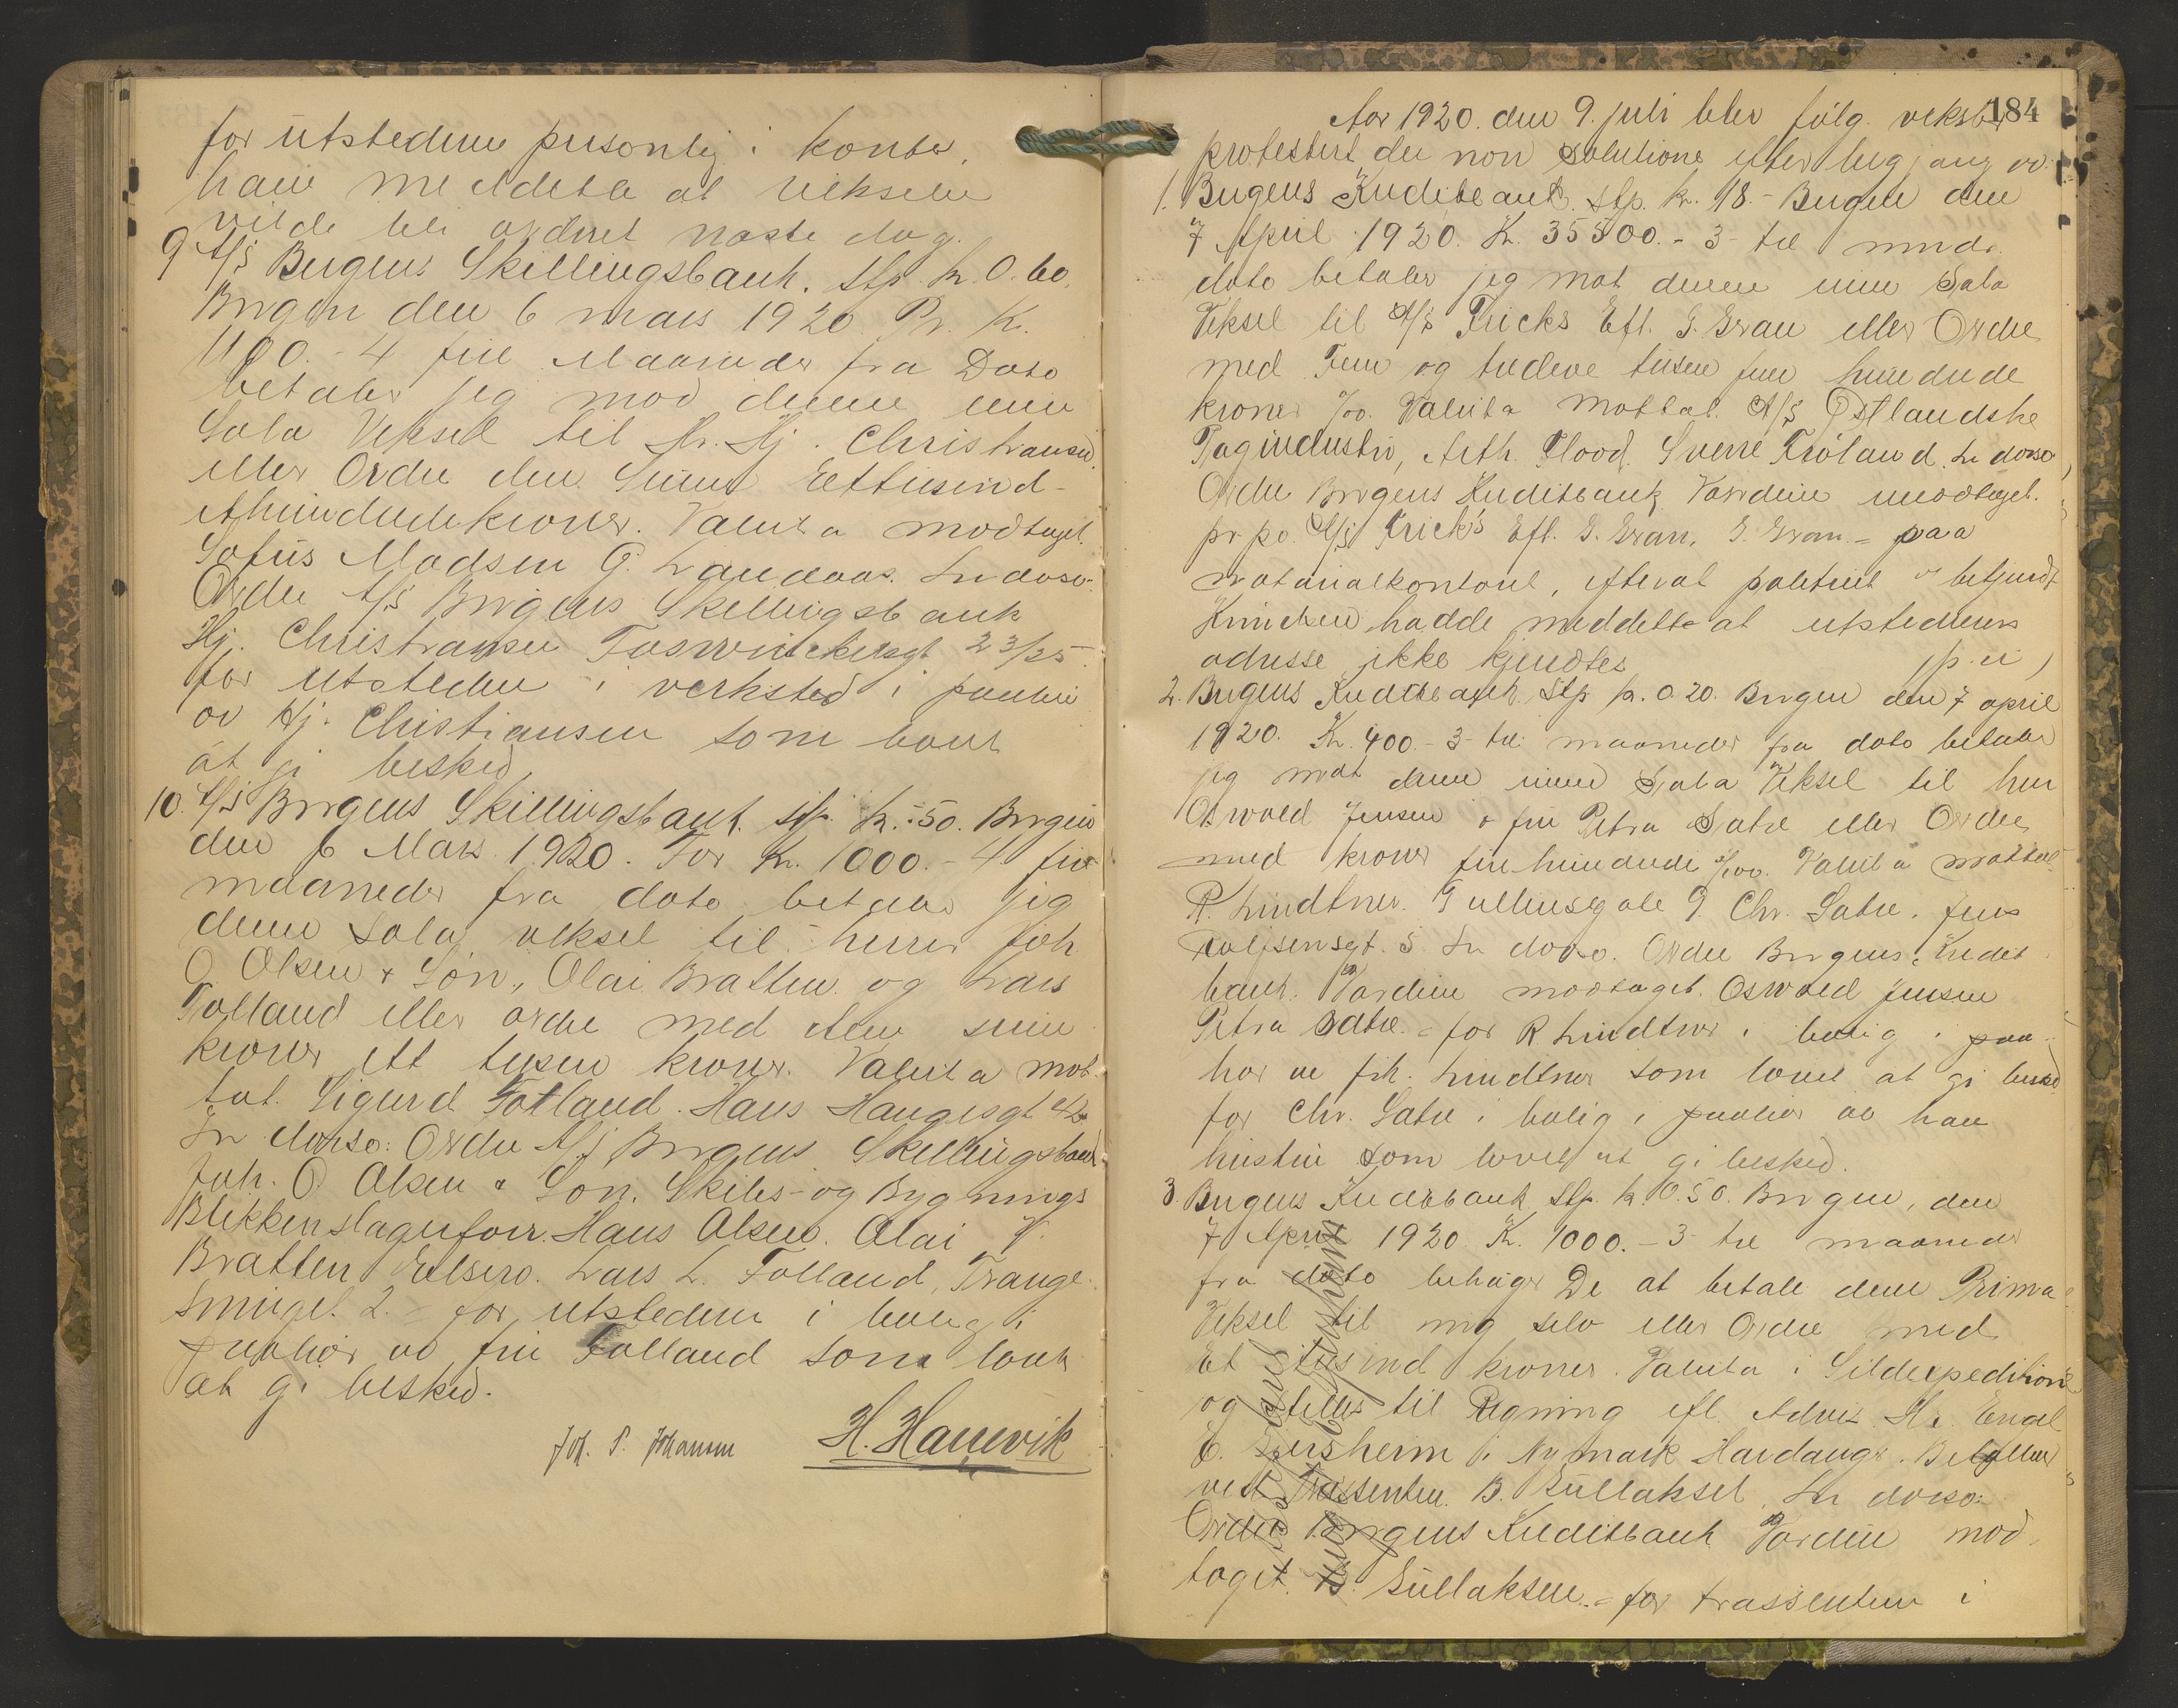 for utstederne personlig i kontor,
han meddelte at vekselen
vilde bli ordnet næste dag.
9 A/S Bergens Skillingsbank. Stp. kr. 0.60.
Bergen den 6 mars 1920. Pr. Kr.
1100.- 4 fire Maaneder fra Dato
betaler jeg mod denne min
Sola Veksel til Hr. Hj. Christiansen
eller Ordre den Summa Ettusind-
ethundredekroner. Valuta modtaget.
Sofus Madsen G. Landaas. In dorso:
Ordre A/S Bergens Skillingsbank
Hj. Christiansen 23/25.
for utstederen i verksted i paahør
av Hj. Christiansen som lovet
at gi besked
10. A/S Bergens Skillingsbank. stp. kr. -:50. Bergen
den 6 Mars 1920. For Kr. 1000.- 4 fire
maaneder fra dato betaler jeg
denne sola veksel til herrer Joh.
O. Olsen & Søn, Olai Bratten og Lars
Folland eller ordre med den sum
kroner ett tusen kroner. Valuta mot-
tat. Sigurd Folland. Hans Haugesgt 42
In dorso: Ordre A/S Bergens Skillingsbank
Joh. O Olsen & Søn. Skibs- og Bygnings
Blikkenslagerforr. Hans Olsen. Olai
Bratten Lars L. Folland, Trange
smuget 2. = for utstederen i bolig i
paahør av fru Folland som lovet
at gi besked.
Joh. P. Johansen H. Hanevik
184
Aar 1920. den 9. juli blev følg. veksler
protestert de non solutione efter begjæring av
1. Bergens Kreditbank. Stp. kr. 18.- Bergen den
7 April 1920. Kr. 35500.- 3- tre mndr.
dato betaler jeg mot denne min Sola
Veksel til A/S Fricks Eft. G. Gran eller Ordre
med Fem og tredeve tusen fem hundrede
kroner %oo. Valuta mottat. A/S Østlandske
Tagindustri, Arth. Flood. Sverre Frøland. In dorso
Ordre Bergens Kreditbank Værdien modtaget.
pr.po. A/S Frick's Eft. G. Gran. G. Gran. = paa
notarialkontoret, efterat politiet
hadde meddelt at utstederens
adresse ikke kjendtes
2. Bergens Kreditbank. Stp. kr. 0.20. Bergen den 7 april
1920. Kr. 400.- 3- tre maaneder fra dato betaler
jeg mot denne min Sola Veksel til herr
Oswald Jensen & fru Petra Sætre eller Ordre
med kroner fire hundrede %oo. Valuta mottat.
R. Lindtner. Tullinsgate 9. Chr. Sætre. Jens
5. In dorso. Ordre Bergens Kredit
bank. Værdien modtaget. Oswald Jensen
Petra Sætre. = for R Lindtner i bolig i paa-
hør av frk. Lindtner som lovet at gi besked
for Chr. Sætre i bolig i paahør av hans
hustru som lovet at gi besked.
3. Bergens Kreditbank Stp. kr. 0.50. Bergen, den
7 April 1920 Kr. 1000.- 3- tre maaneder
fra dato behager De at betale denne Prima
Veksel til mig selv eller Ordre med
Et tusind kroner. Valuta i Sildexpedition
og stilles til Regning efl. Advis. Hr. Engel
E. i Nymark Hardanger. Betalbar
ved Trassenten. B. Gullaksen. In dorso:
Ordre Bergens Kreditbank Værdien mod-
taget. B. Gullaksen. = for trassenten i